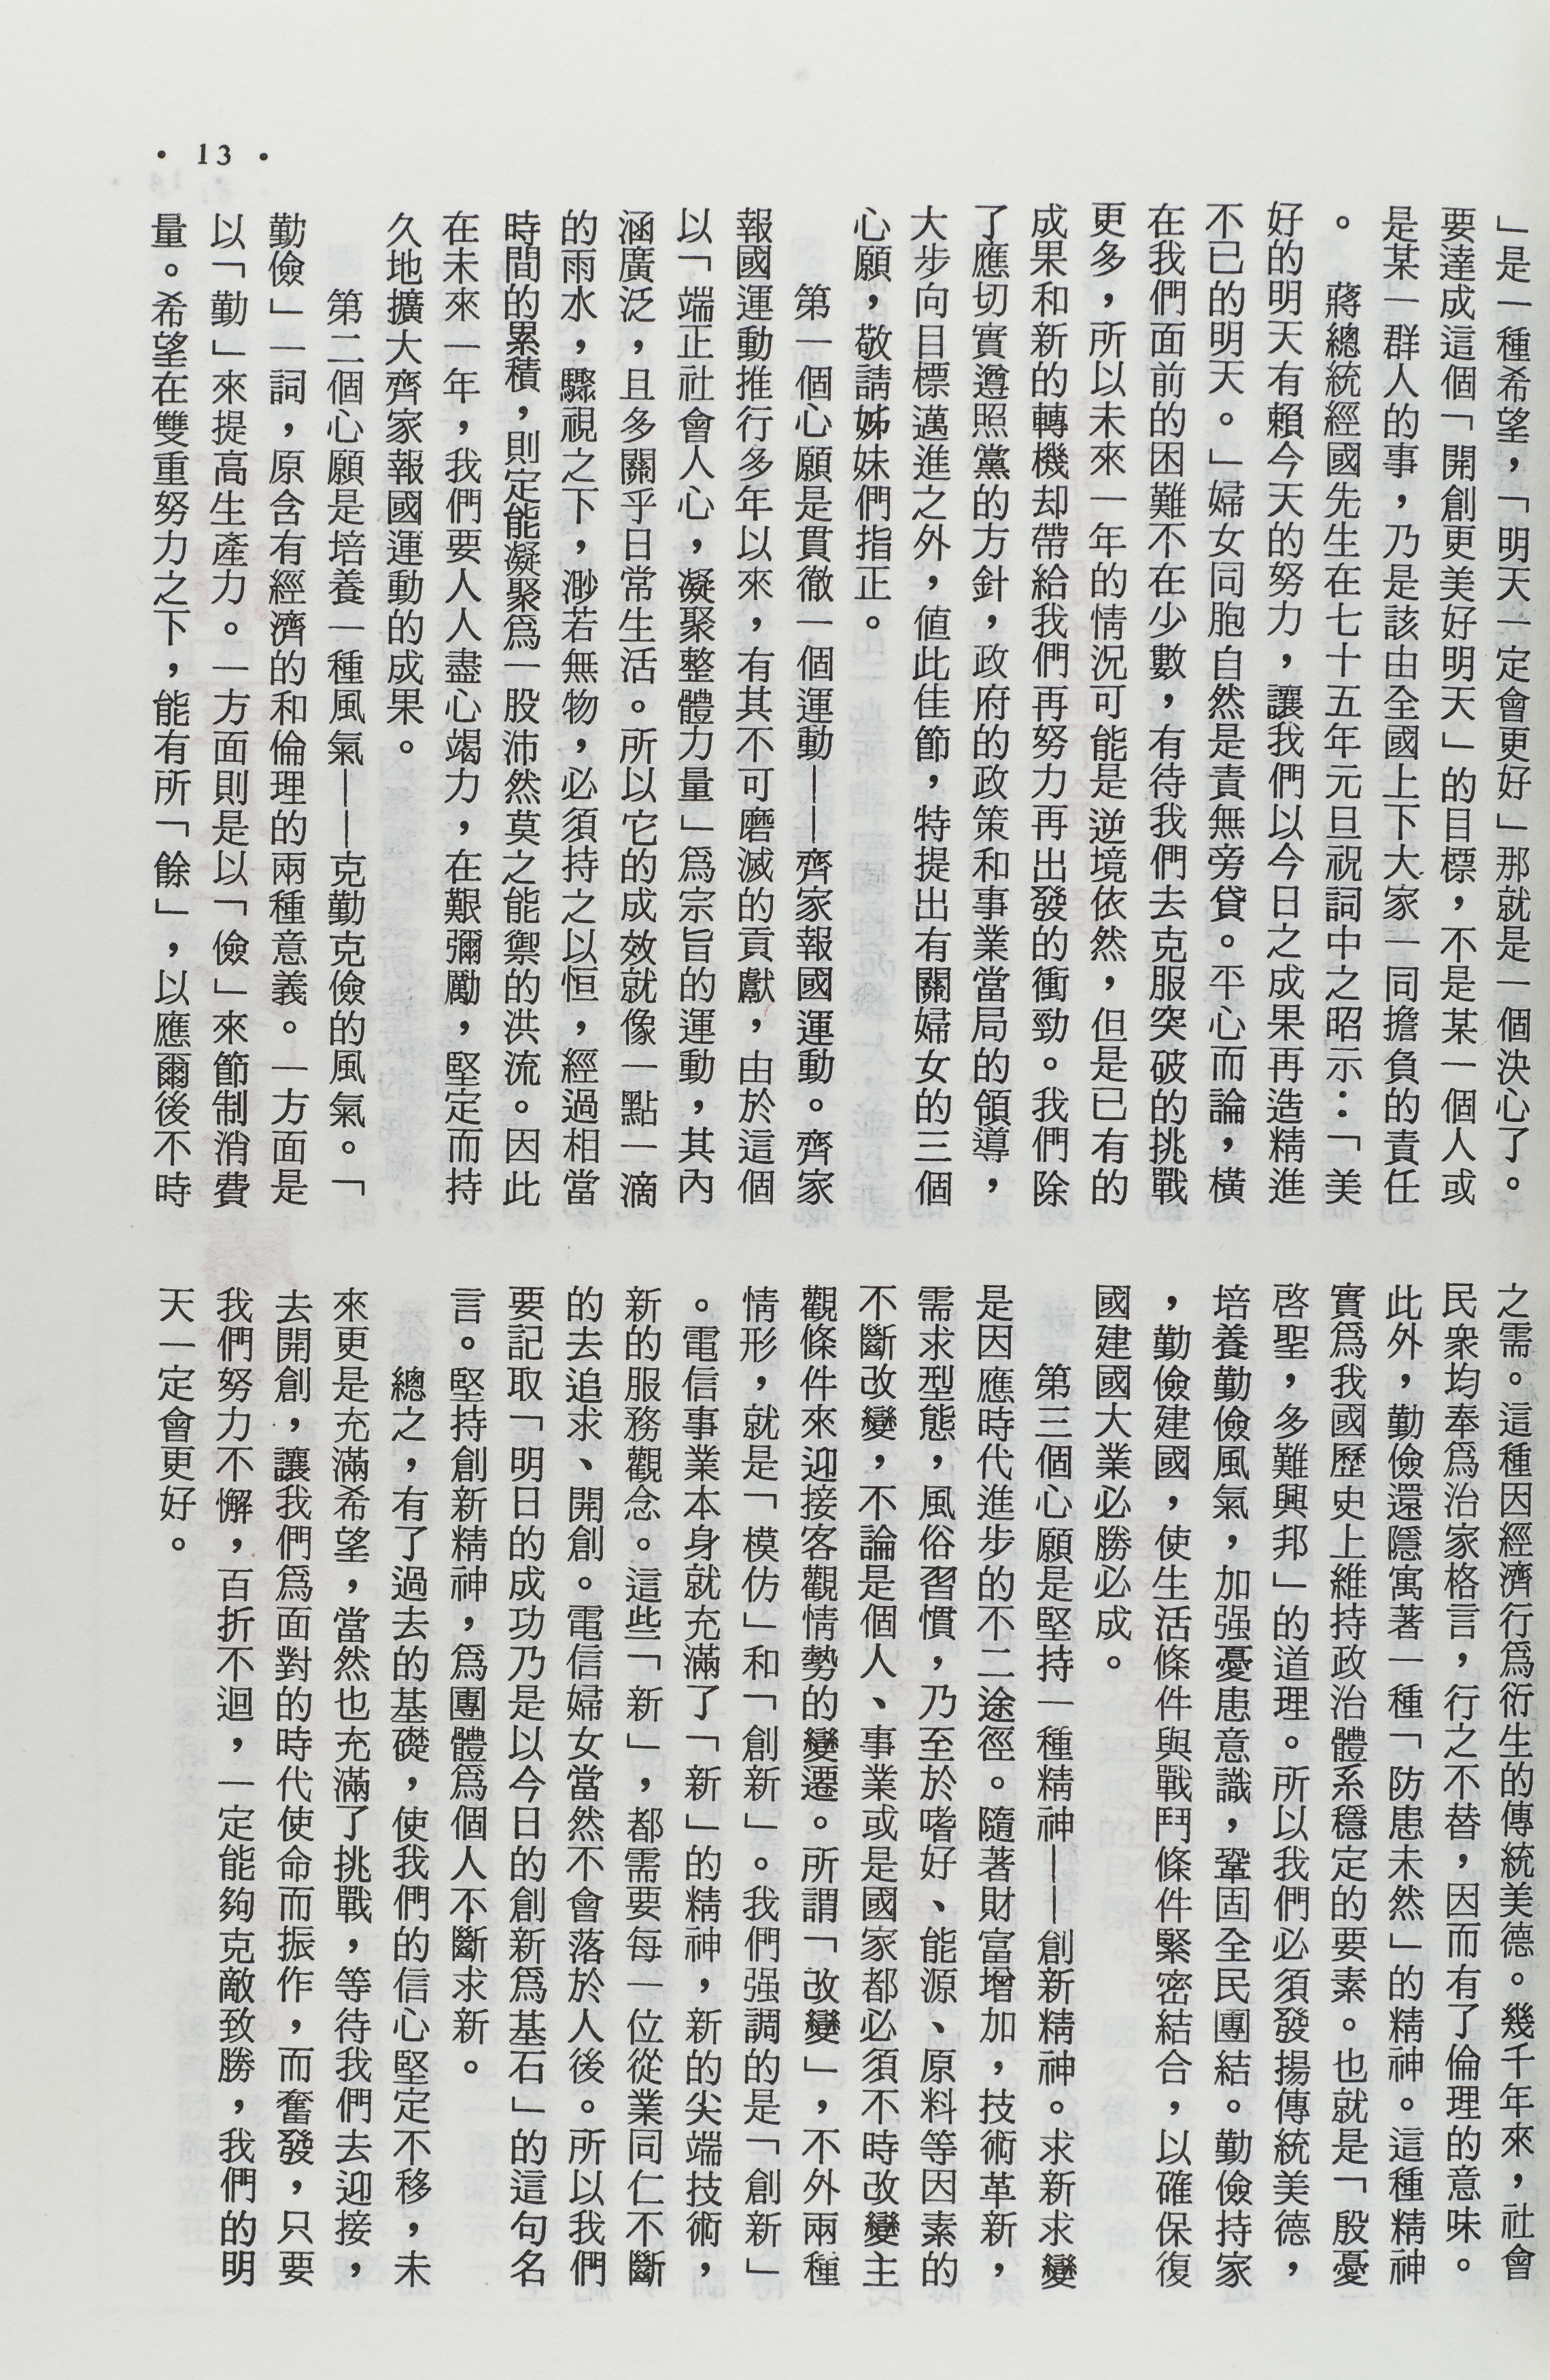 」是一種希望，「明天一定會更好」那就是一個決心了。
要達成這個「開創更美好明天」的目標，不是某一個人或
是某一群人的事，乃是該由全國上下大家一同擔負的責任
。
蔣總統經國先生在七十五年元旦祝詞中之昭示：「美
好的明天有賴今天的努力，讓我們以今日之成果再造精進
不已的明天。」婦女同胞自然是責無旁貸。平心而論，橫
在我們面前的困難不在少數，有待我們去克服突破的挑戰
更多，所以未來一年的情況可能是逆境依然，但是已有的
成果和新的轉機却帶給我們再努力再出發的衝勁。我們除
了應切實遵照黨的方針，政府的政策和事業當局的領導，
大步向目標邁進之外，值此佳節，特提出有關婦女的三個
心願，敬請姊妹們指正。
第一個心願是貫徹一個運動——齊家報國運動。齊家
報國運動推行多年以來，有其不可磨滅的貢獻，由於這個
以「端正社會人心，凝聚整體力量」爲宗旨的運動，其內
涵廣泛，且多關乎日常生活。所以它的成效就像一點一滴
的雨水，驟視之下，渺若無物，必須持之以恒，經過相當
時間的累積，則定能凝聚爲一股沛然莫之能禦的洪流。因此
在未來一年，我們要人人盡心竭力，在艱彌勵，堅定而持
久地擴大齊家報國運動的成果。
第二個心願是培養一種風氣——克勤克儉的風氣。「
勤儉」一詞，原含有經濟的和倫理的兩種意義。一方面是
以「勤」來提高生產力。一方面則是以「儉」來節制消費
量。希望在雙重努力之下，能有所「餘」，以應爾後不時
之需。這種因經濟行爲衍生的傳統美德。幾千年來，社會
民衆均奉爲治家格言，行之不替，因而有了倫理的意味。
此外，勤儉還隱寓著一種「防患未然」的精神。這種精神
實爲我國歷史上維持政治體系穩定的要素。也就是「殷憂
啓聖，多難興邦」的道理。所以我們必須發揚傳統美德，
培養勤儉風氣，加强憂患意識，鞏固全民團結。勤儉持家
，勤儉建國，使生活條件與戰鬥條件緊密結合，以確保復
國建國大業必勝必成。
第三個心願是堅持一種精神——創新精神。求新求變
是因應時代進步的不二途徑。隨著財富增加，技術革新，
需求型態，風俗習慣，乃至於嗜好、能源、原料等因素的
不斷改變，不論是個人、事業或是國家都必須不時改變主
觀條件來迎接客觀情勢的變遷。所謂「改變」，不外兩種
情形，就是「模仿」和「創新」。我們强調的是「創新」
。電信事業本身就充滿了「新」的精神，新的尖端技術，
新的服務觀念。這些「新」，都需要每一位從業同仁不斷
的去追求、開創。電信婦女當然不會落於人後。所以我們
要記取「明日的成功乃是以今日的創新爲基石」的這句名
言。堅持創新精神，爲團體爲個人不斷求新。
總之，有了過去的基礎，使我們的信心堅定不移，未
來更是充滿希望，當然也充滿了挑戰，等待我們去迎接，
去開創，讓我們爲面對的時代使命而振作，而奮發，只要
我們努力不懈，百折不迴，一定能夠克敵致勝，我們的明
天一定會更好。
• 13 •